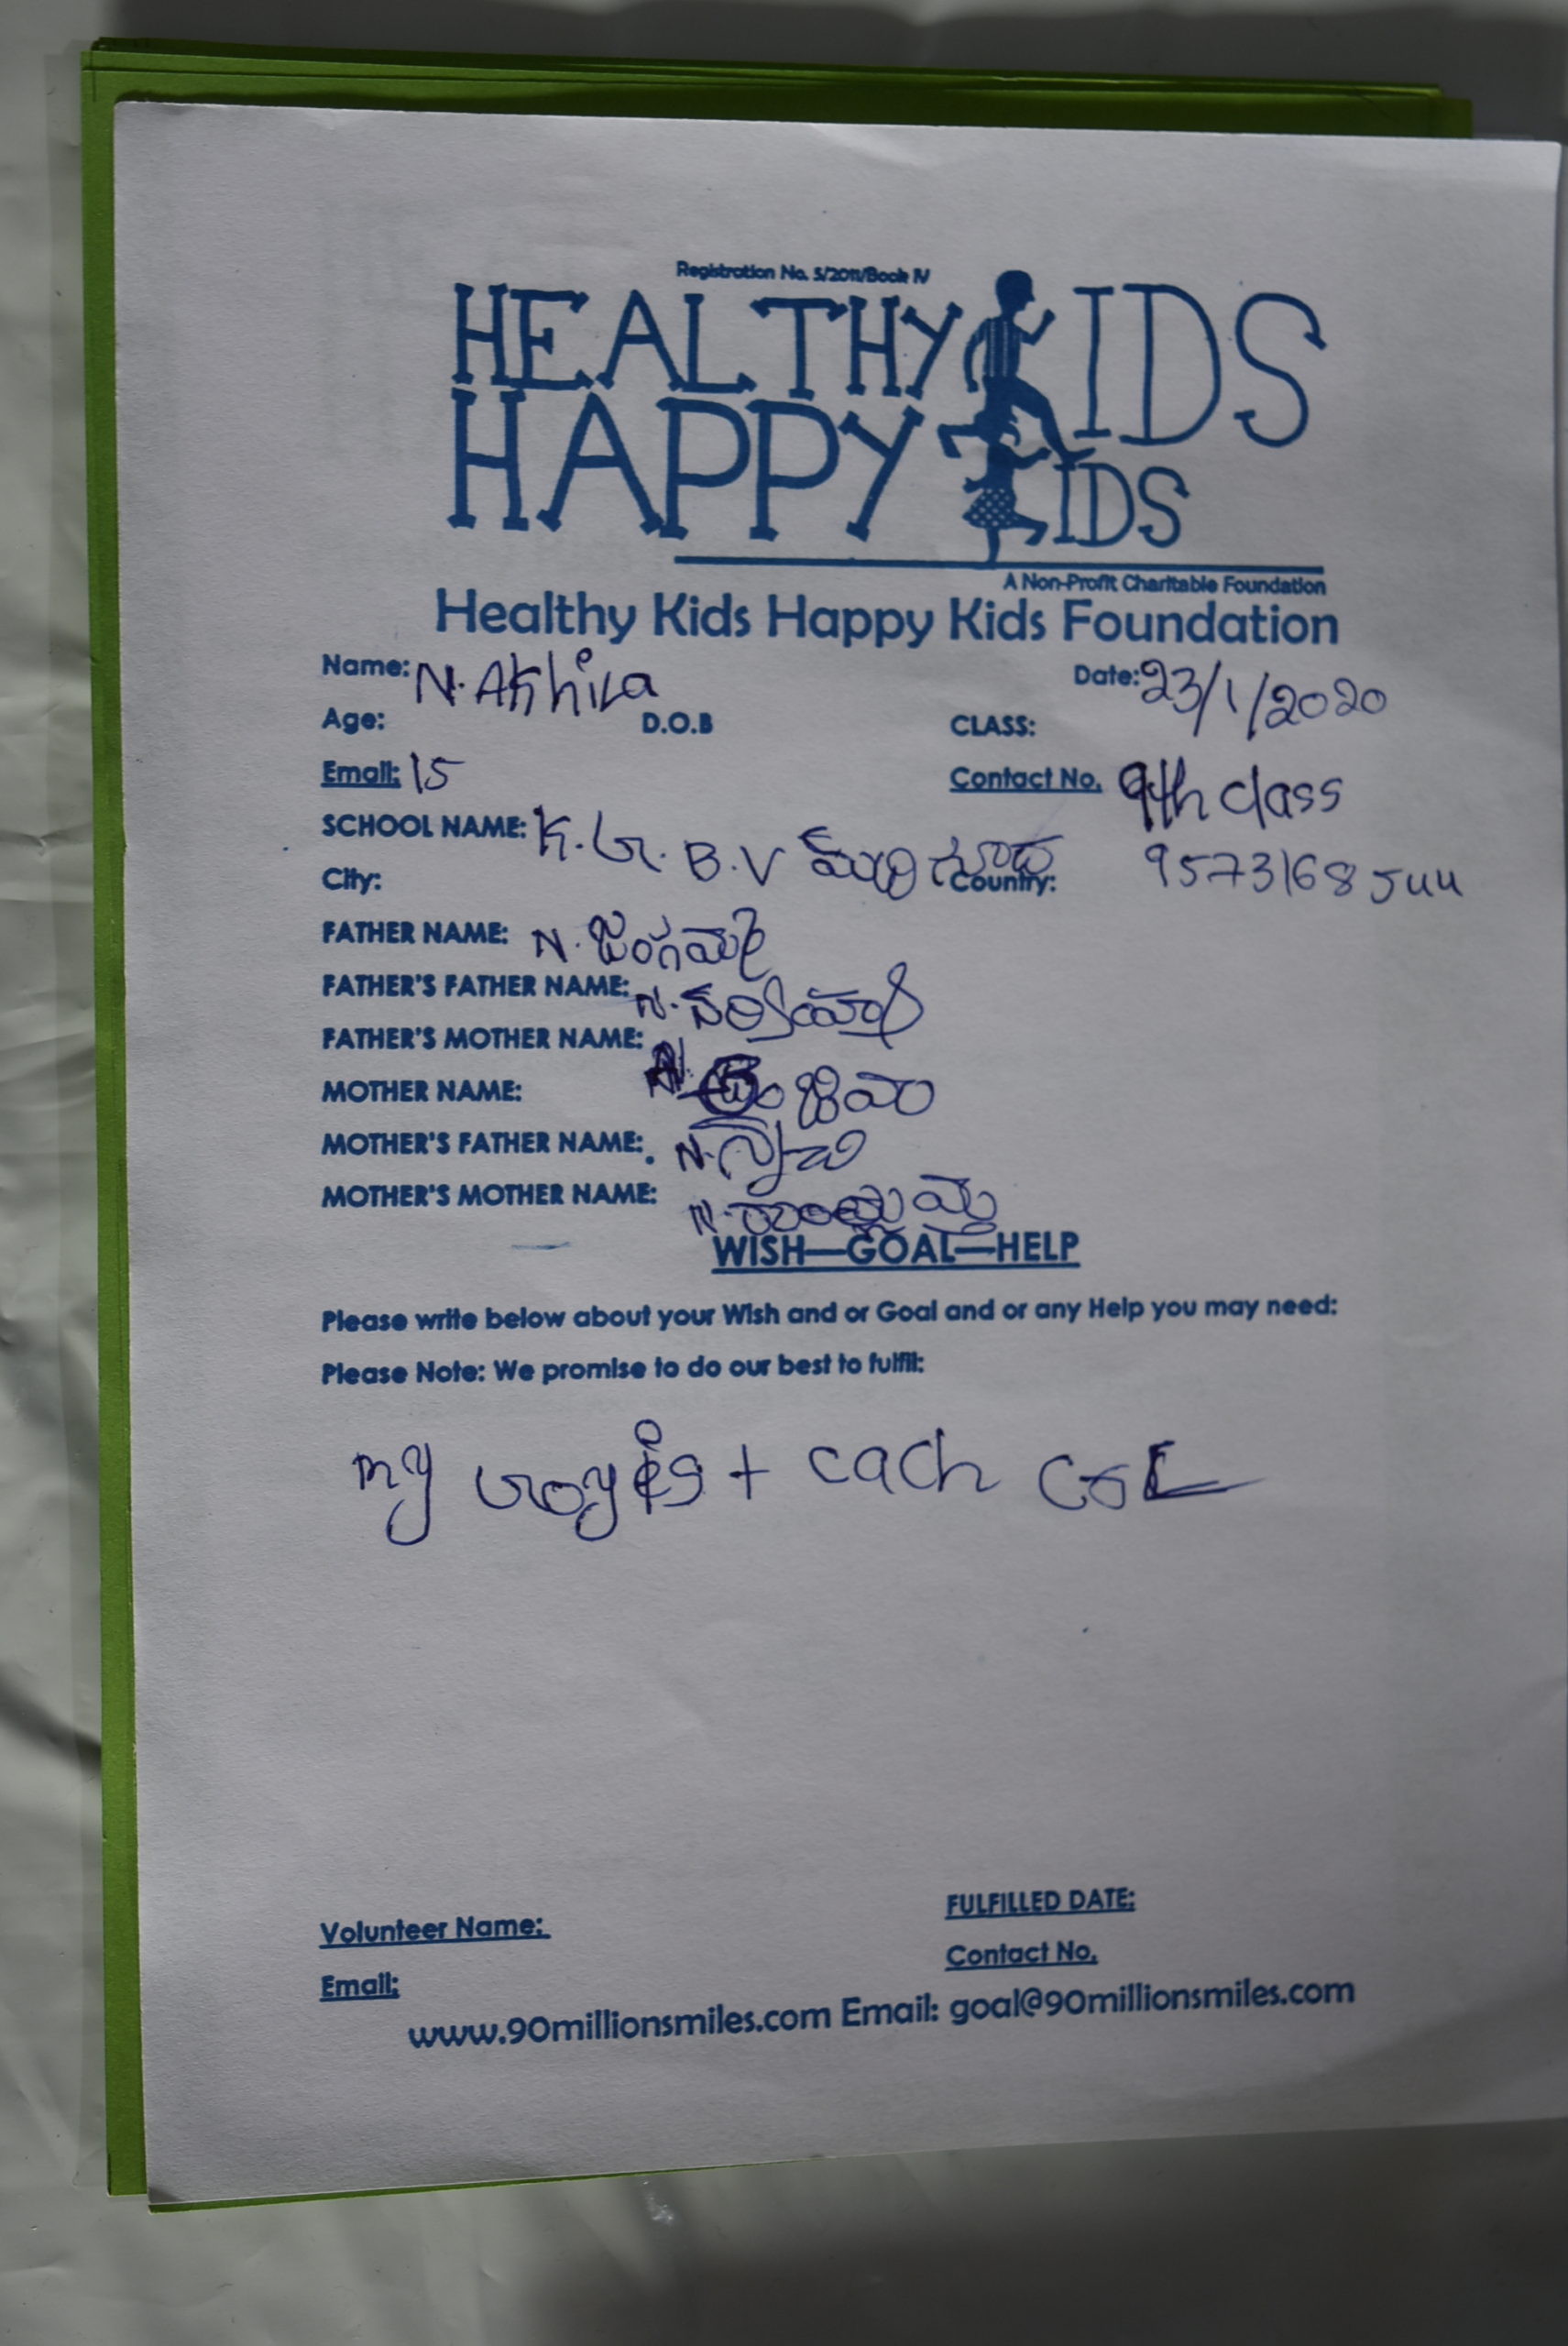 Registration No. 5/2011/Book IV
HEALTHY KIDS
HAPPY KIDS
A Non-Profit Charitable Foundation
Healthy Kids Happy Kids Foundation
Name: N. Akhila Date: 23/1/2020
Age: D.O.B CLASS:
Email: 15 Contact No. 9th class
SCHOOL NAME: K. G. B. V
City: Country:
FATHER NAME: N.
FATHER'S FATHER NAME: N.
FATHER'S MOTHER NAME:
MOTHER NAME: N.
MOTHER'S FATHER NAME: N.
MOTHER'S MOTHER NAME: N.
WISH—GOAL—HELP
Please write below about your Wish and or Goal and or any Help you may need:
Please Note: We promise to do our best to fulfil:
my + cach
Volunteer Name: FULFILLED DATE:
Email: Contact No.
www.90millionsmiles.com Email: goal@90millionsmiles.com